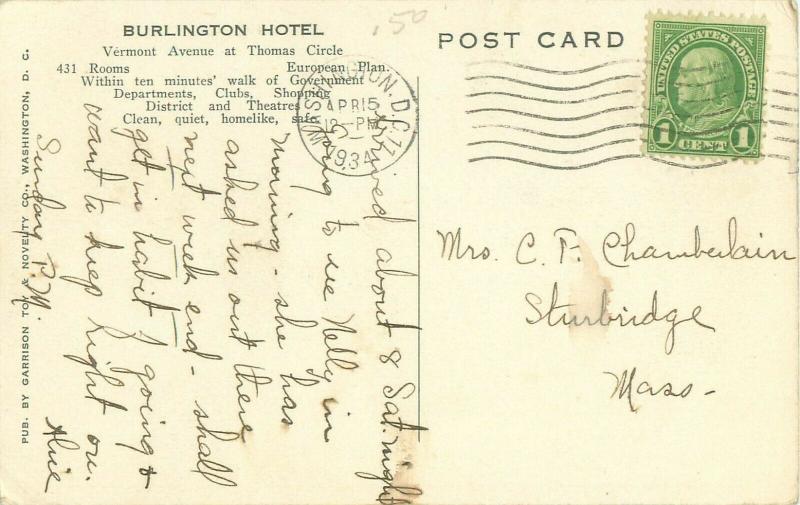 .50
BURLINGTON HOTEL
Vermont Avenue at Thomas Circle
431 Rooms European Plan.
Within ten minutes' walk of Government
Departments, Clubs, Shopping
District and Theatres
Clean, quiet, homelike, safe.
POST CARD
WASHINGTON, D.C.
APR 15
12-PM
1934
UNITED STATES POSTAGE
1 CENT 1
Mrs. C. F. Chamberlain
Sturbridge
Mass-
Arrived about 8 Sat. night
going to see Nelly in
morning - she has
asked us out there
next week end - shall
get in habit of going &
want to keep right on.
Sunday P.M. Alice
PUB. BY GARRISON TOY & NOVELTY CO., WASHINGTON, D. C.